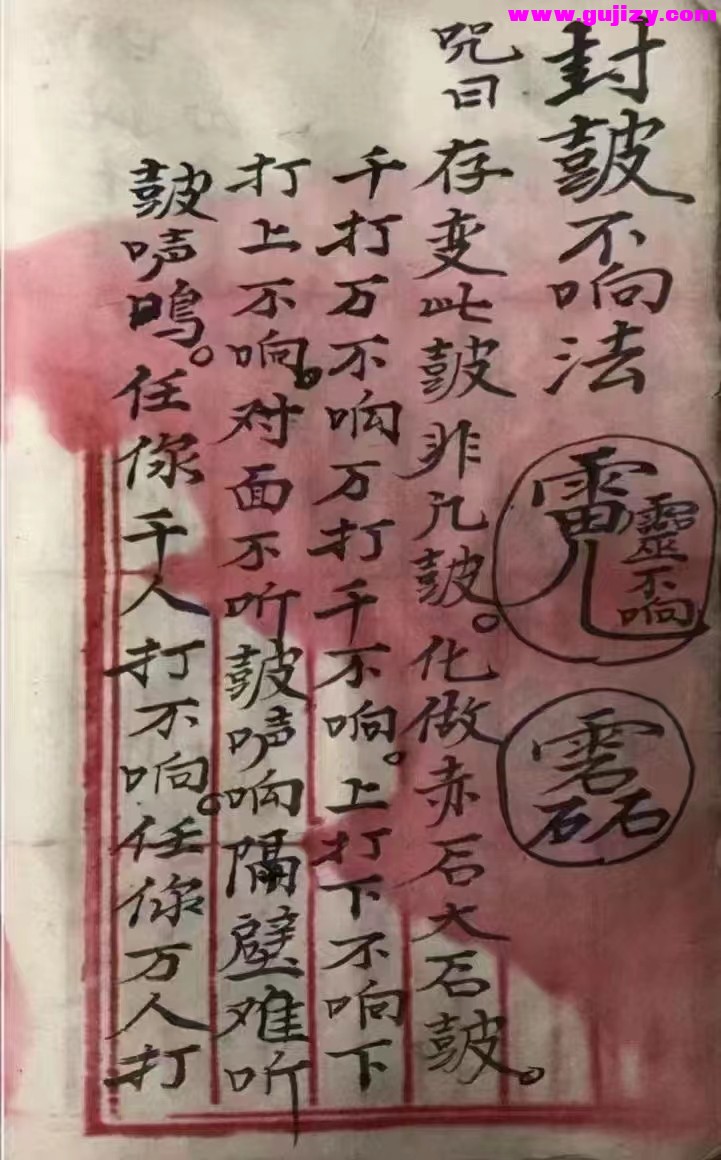 www.gujizy.com
封皷不响法
靈不响
咒曰存变此皷非凡皷。化做赤石大石皷。
千打万不响万打千不响。上打下不响下
打上不响。对面不听皷声响隔壁难听
皷声鳴。任你千人打不响。任你万人打